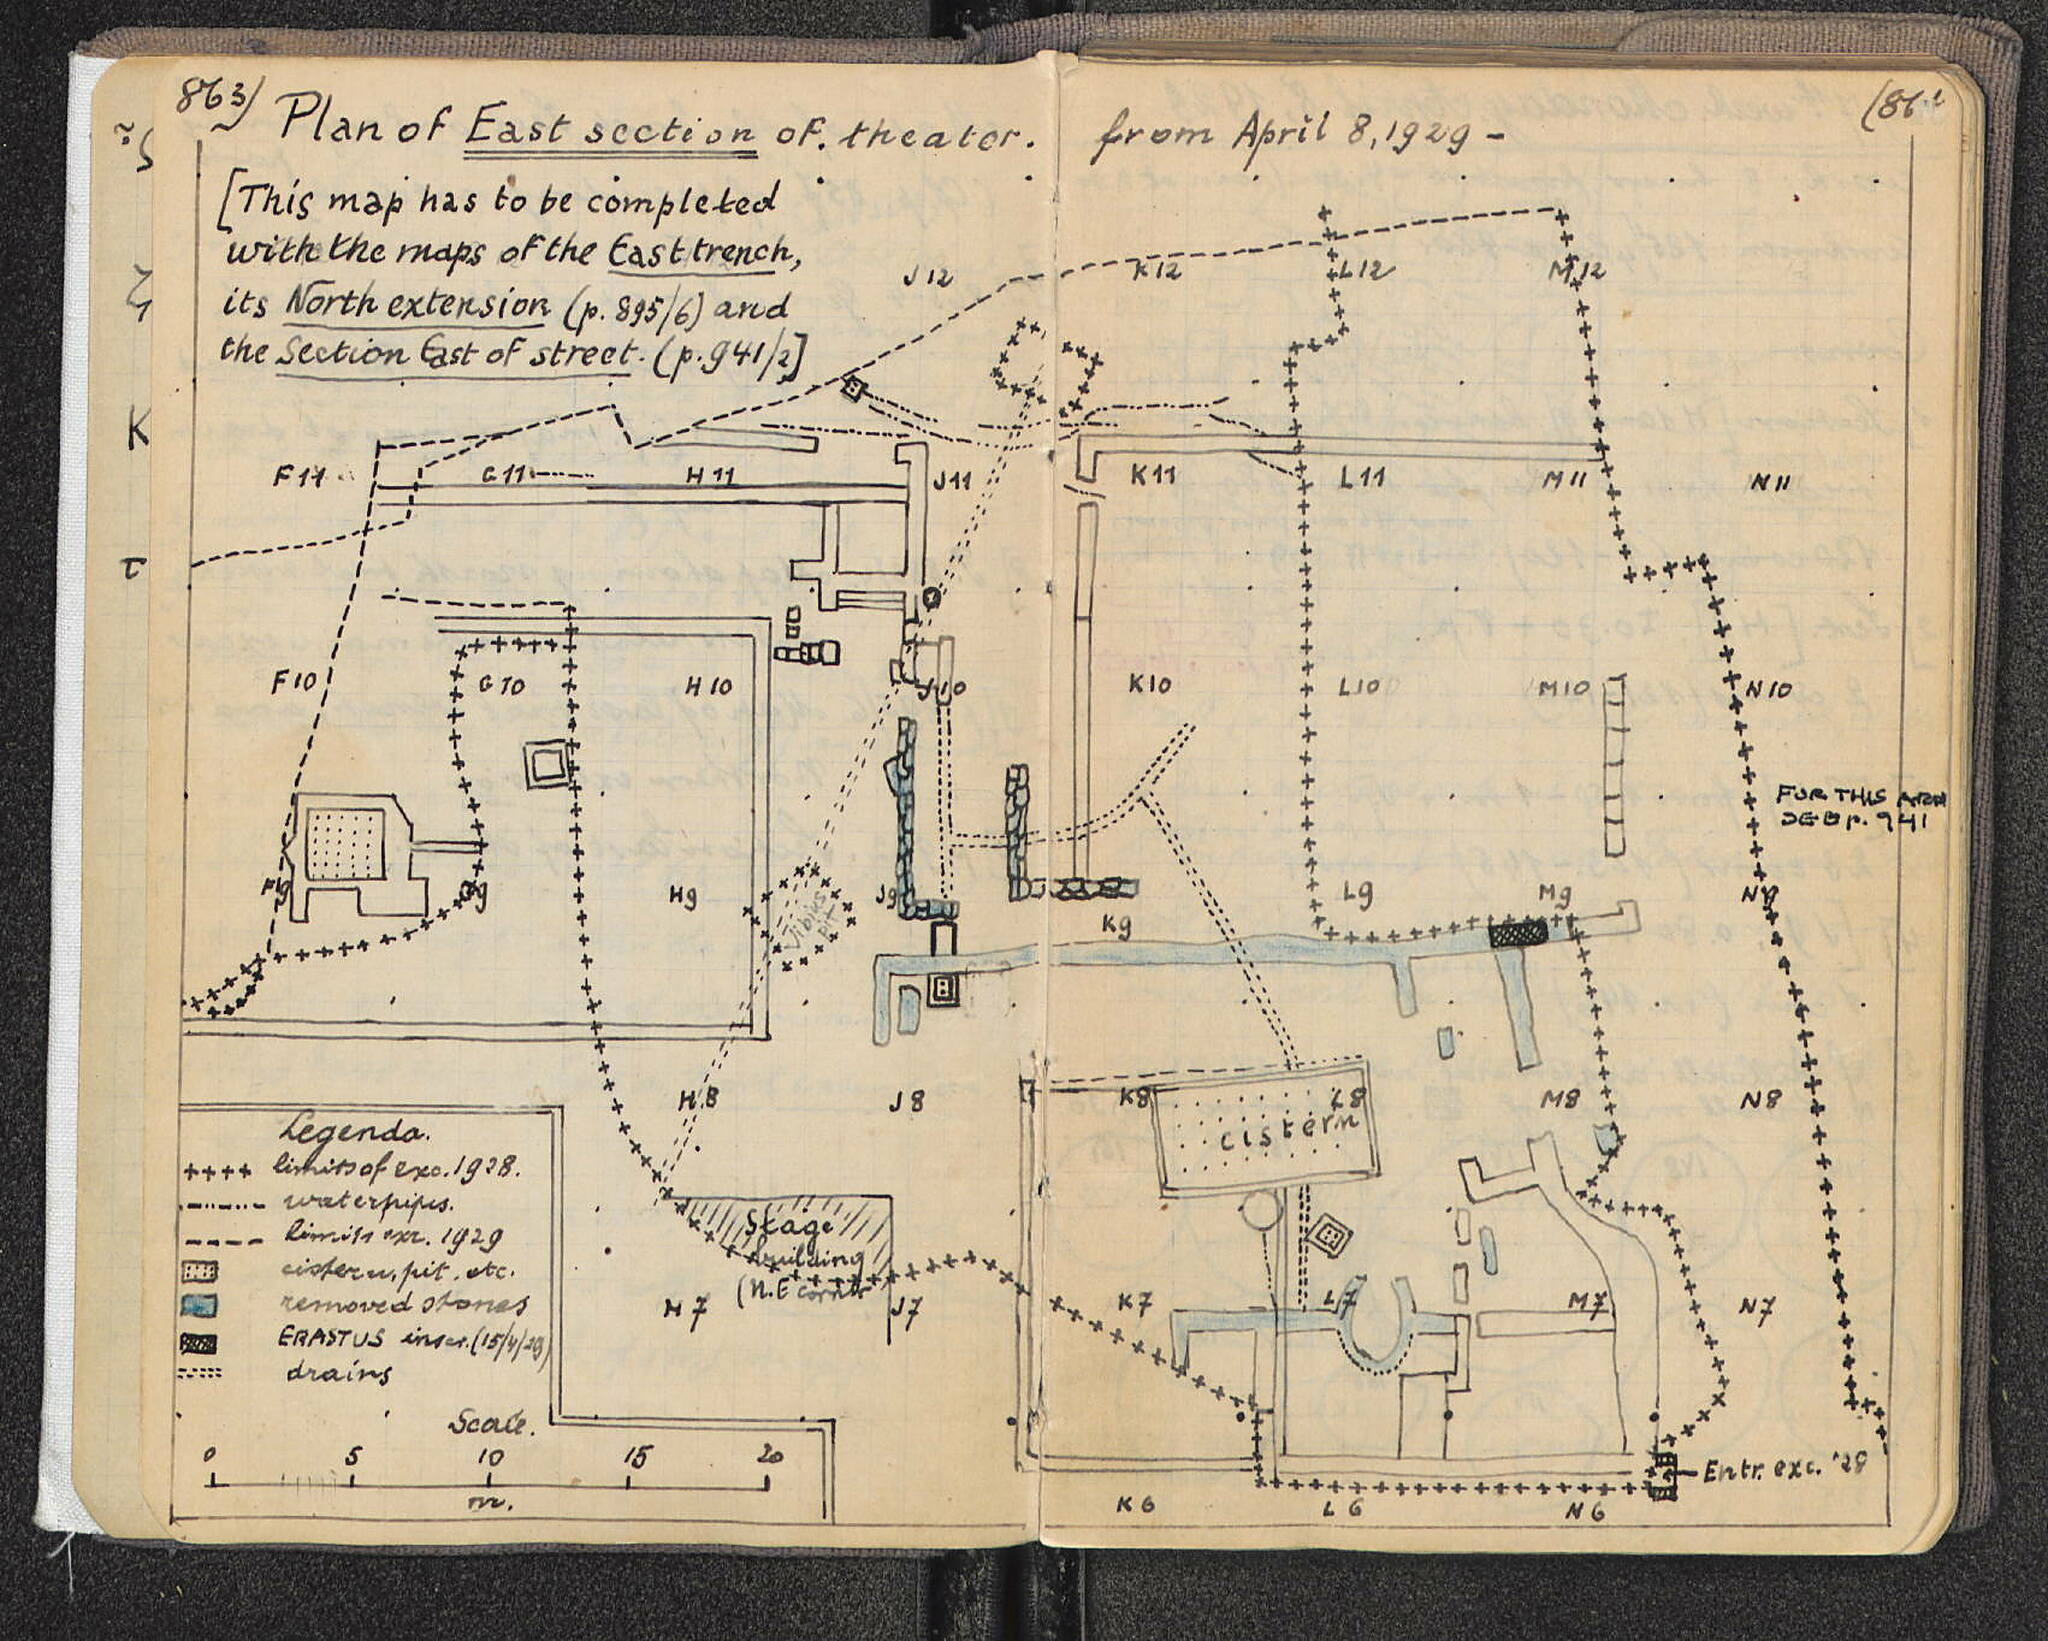 863)
Plan of East section of. theater. from April 8, 1929 -
[This map has to be completed
with the maps of the East trench,
its North extension (p. 895/6) and
the Section East of street. (p. 941/2]
J 12 K 12 L 12 M 12
F 11 G 11 H 11 J 11 K 11 L 11 M 11 N 11
F 10 G 10 H 10 J 10 K 10 L 10 M 10 N 10
FOR THIS AREA
SEE p. 941
F 9 G 9 H 9 J 9 K 9 L 9 M 9 N 9
Vibius
pit
H 8 J 8 K 8 L 8 M 8 N 8
cistern
Stage
building
(N.E corner
H 7 J 7 K 7 L 7 M 7 N 7
Legenda.
++++ limits of exc. 1928.
waterpipes.
limits exc. 1929
cistern, pit. etc.
removed stones
ERASTUS inscr. (15/4/29)
drains
Scale.
0 5 10 15 20
m.
Entr. exc. '28
K 6 L 6 N 6
K
τ